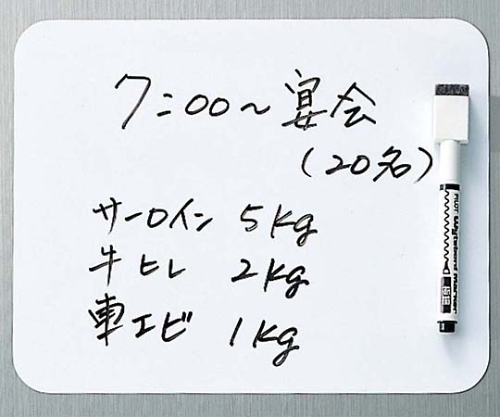 7:00〜宴会
(20名)
サーロイン 5kg
牛ヒレ 2kg
車エビ 1kg
PILOT Wyteboard Marker